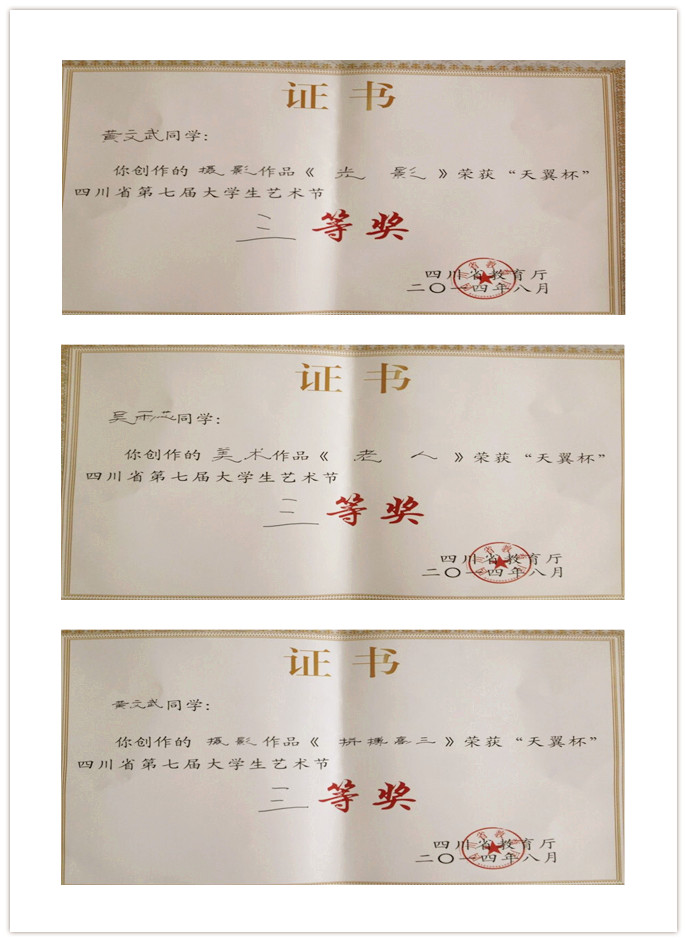 证书
黄文武同学：
你创作的 摄影作品《 光 影 》荣获“天翼杯”
四川省第七届大学生艺术节
三等奖
四川省教育厅
二〇一四年八月
证书
吴雨芯同学：
你创作的 美术作品《 老 人 》荣获“天翼杯”
四川省第七届大学生艺术节
三等奖
四川省教育厅
二〇一四年八月
证书
黄文武同学：
你创作的 摄影作品《 三》荣获“天翼杯”
四川省第七届大学生艺术节
三等奖
四川省教育厅
二〇一四年八月